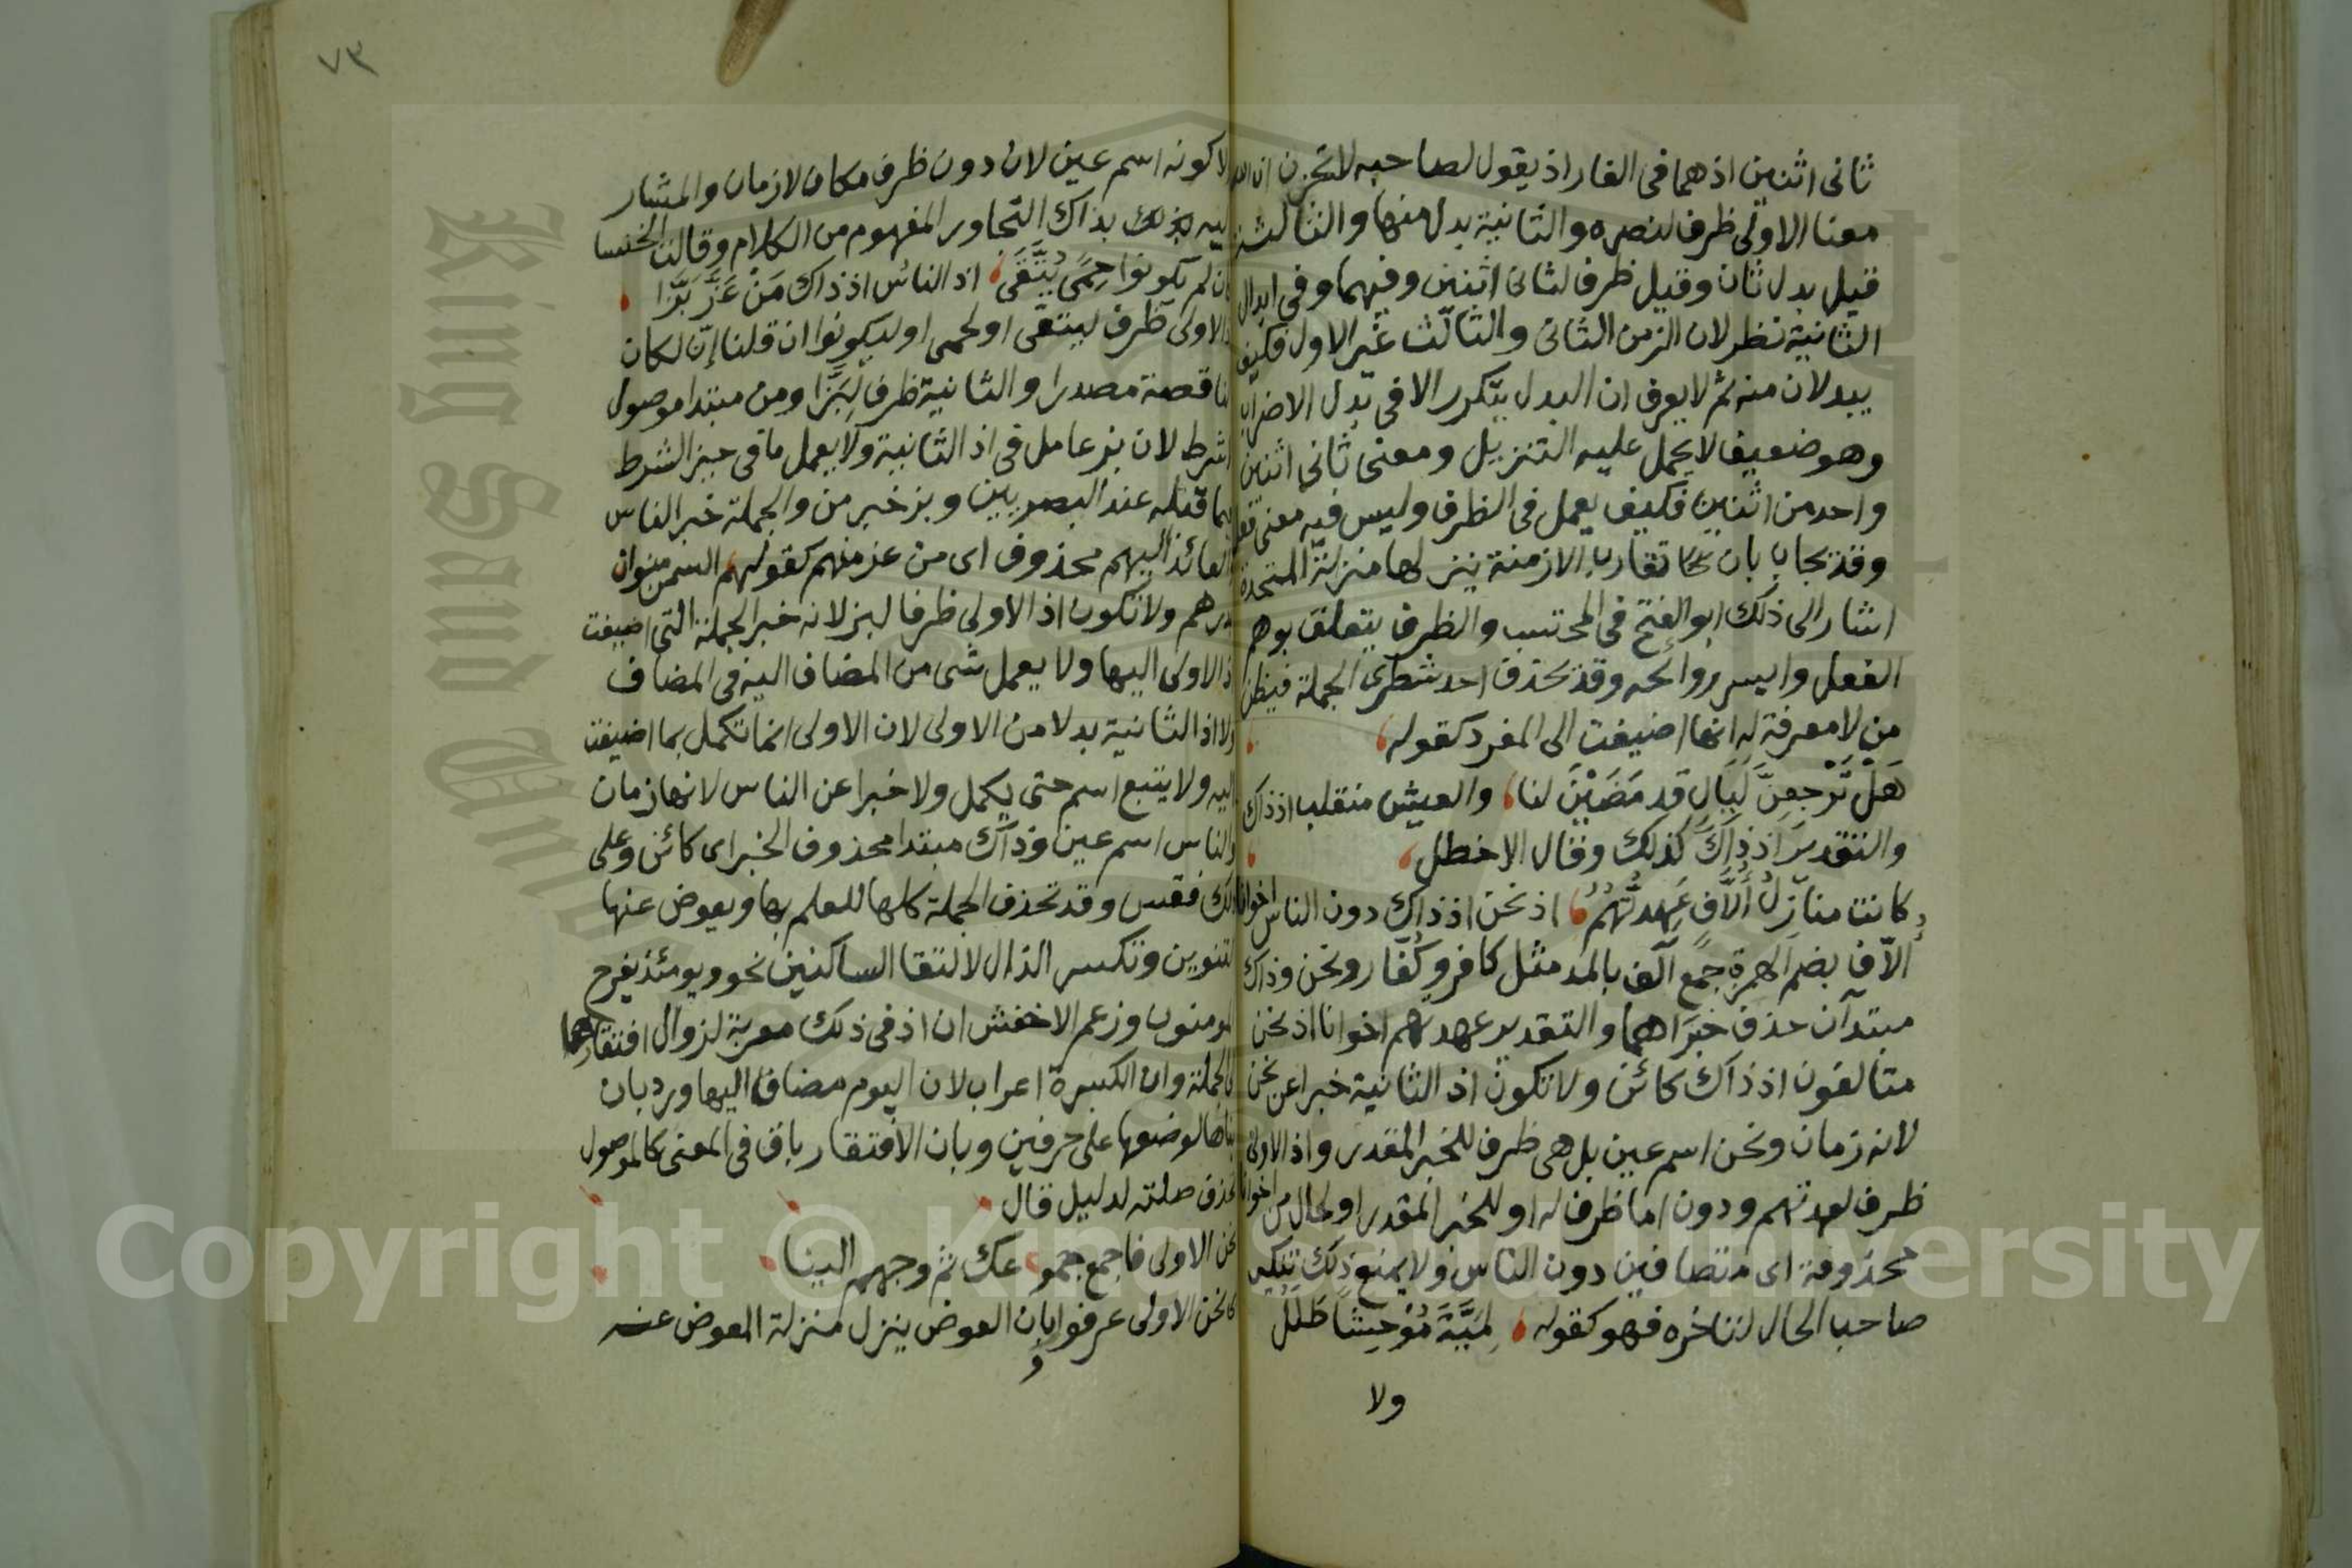 ثانى اثنين اذ هما فى الغار اذ يقول لصاحبه لا تحزن ان الله
معنا الاولى ظرف لنصره والثانية بدل منها والثالثة
قيل بدل ثان وقيل ظرف لثانى اثنين وفيهما وفى ابدال
الثانية نظر لان الزمن الثانى والثالث غير الاول فكيف
يبدلان منه ثم لا يعرف ان البدل يتكرر الا فى بدل الاضراب
وهو ضعيف لا يحمل عليه التنزيل ومعنى ثانى اثنين
واحد من اثنين فكيف يعمل فى الظرف وليس فيه معنى فعل
وقد يجاب بان تقارب الازمنة ينزلها منزلة المتحدة
اشار الى ذلك ابو الفتح فى المحتسب والظرف يتعلق بوهم
الفعل وايسر روائحه وقد تحذف احد شطرى الجملة فيظن
من لا معرفة له انها اضيفت الى المفرد كقوله
هَلْ تَرْجِعِنَّ لَيَالٍ قد مَضَيْنَ لنا والعيش منقلب اذ ذاك
والتقدير اذ ذاك كذلك وقال الاخطل
كانت منازل أُلَّافٍ عَهِدتُّهُمُ اذ نحن اذ ذاك دون الناس اخوانا
أُلاّف بضم الهمزة جمع آلف بالمد مثل كافر وكُفّار ونحن وذاك
مبتدآن حذف خبراهما والتقدير عهدتهم اخوانا اذ نحن
متالفون اذ ذاك كائن ولا تكون اذ الثانية خبرا عن نحن
لانه زمان ونحن اسم عين بل هى ظرف للخبر المقدر واذ الاولى
ظرف لعهدتهم ودون اما ظرف له او للخبر المقدر او لحال من اخوانا
محذوفة اى متصافين دون الناس ولا يمنع ذلك تنكير
صاحب الحال لتاخره فهو كقوله لِمَيَّةَ مُوْحِشًا طَلَلُ
ولا
٧٣
ولا كونه اسم عين لان دون ظرف مكان لا زمان والمشار
اليه بذلك بذاك التجاور المفهوم من الكلام وقالت الخنسا
كان لم يكونوا حِمًى يُتَّقَى اذ الناس اذ ذاك مَنْ عَزَّ بَزَّا
اذ الاولى ظرف ليتقى او لحمى او ليكونوا ان قلنا إنّ لكان
الناقصة مصدرا والثانية ظرف لِبَزَّا ومن مبتدا موصول
لا شرط لان بز عامل فى اذ الثانية ولا يعمل ما فى حيز الشرط
فيما قبله عند البصريين وبز خبر من والجملة خبر الناس
والعائد اليهم محذوف اى من عز منهم كقولهم السمن منوان
بدرهم ولا تكون اذ الاولى ظرفا لبز لانه خبر الجملة التى اضيفت
اذ الاولى اليها ولا يعمل شى من المضاف اليه فى المضاف
ولا اذ الثانية بدلا من الاولى لان الاولى انما تكمل بما اضيفت
اليه ولا يتبع اسم حتى يكمل ولا خبرا عن الناس لانها زمان
والناس اسم عين وذاك مبتدا محذوف الخبر اى كائن وعلى
ذلك فقس وقد تحذف الجملة كلها للعلم بها ويعوض عنها
التنوين وتكسر الذال لالتقا الساكنين نحو ويومئذ يفرح
المومنون وزعم الاخفش ان اذ فى ذلك معربة لزوال افتقارها
الى الجملة وان الكسرة اعراب لان اليوم مضاف اليها ورد بان
بناها لوضعها على حرفين وبان الافتقار باق فى المعنى كالموصول
تحذف صلته لدليل قال
نحن الاولى فاجمع جمو عك ثم وجههم الينا
اى نحن الاولى عرفوا وبان العوض ينزل منزلة المعوض عنه